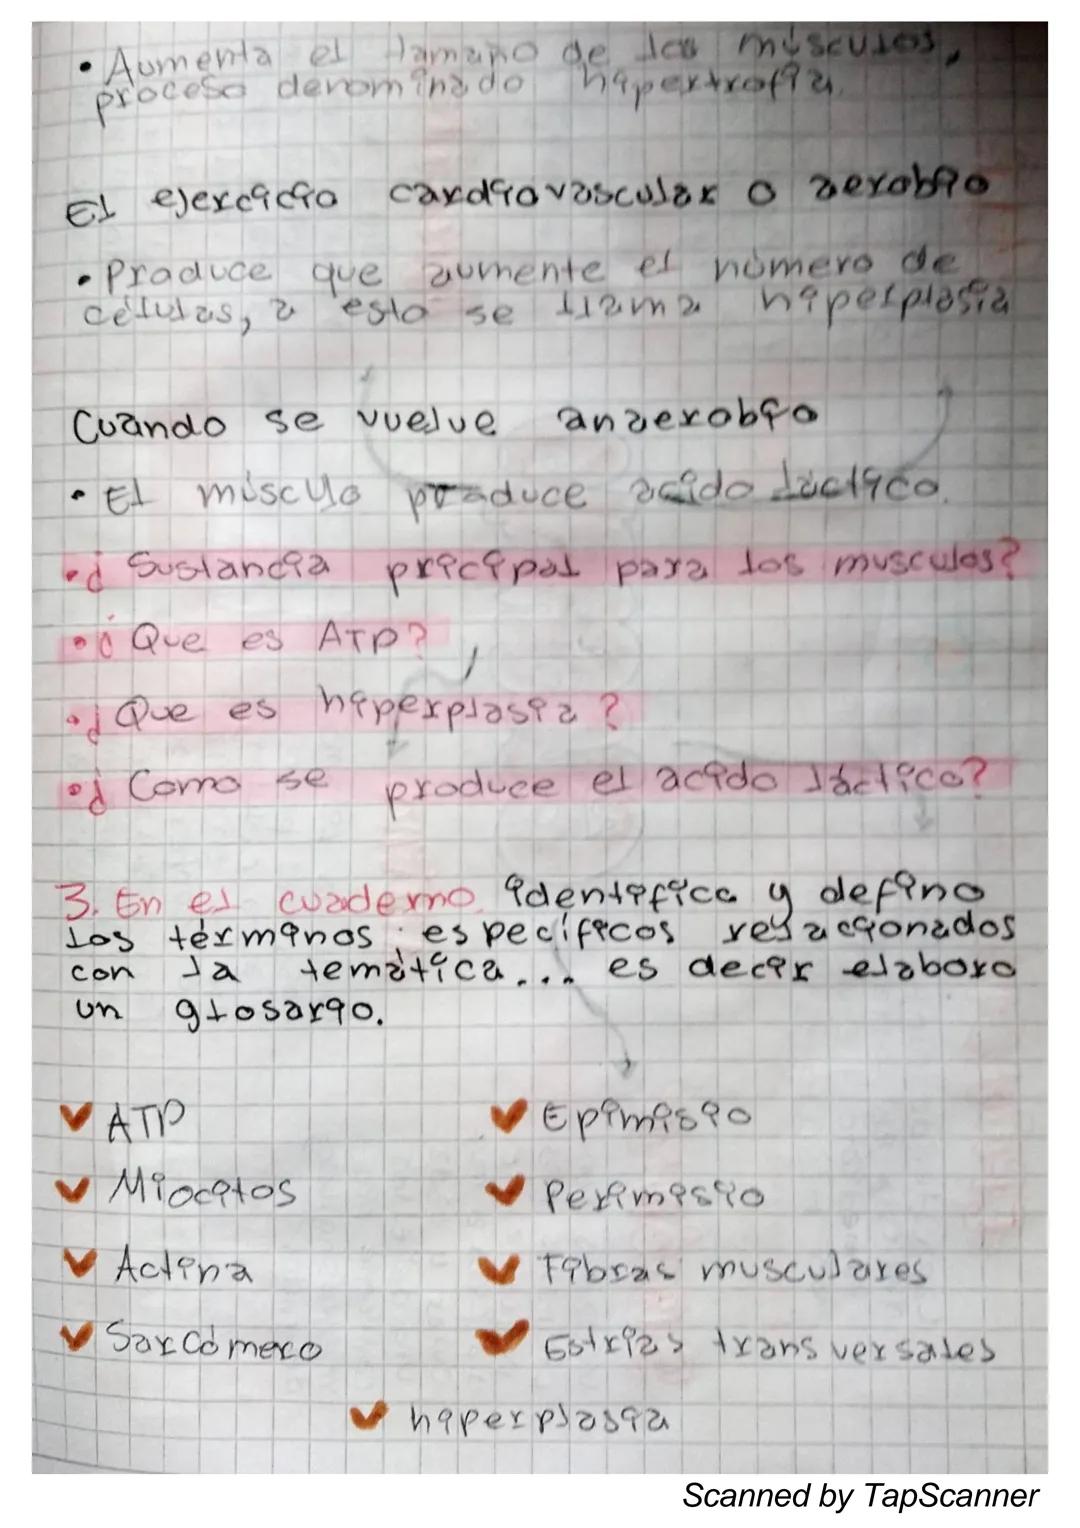 • Aumenta el tamaño de los músculos,
proceso denominado hipertrofia.
El ejercicio cardiovascular o aerobio
• Produce que aumente el número de
células, a esto se llama hiperplasia
Cuando se vuelve anaerobio
• El músculo produce acido láctico.
• ¿Sustancia pricipal para los musculos?
• ¿Que es ATP?
• ¿Que es hiperplasia?
• ¿Como se produce el acido láctico?
3. En el cuaderno identifico y defino
los términos específicos relacionados
con la temática... es decir elaboro
un glosario.
ATP
Epimisio
Miocitos
Perimisio
Actina
Fibras musculares
Sarcómero
Estrias transversales
hiperplasia
Scanned by TapScanner